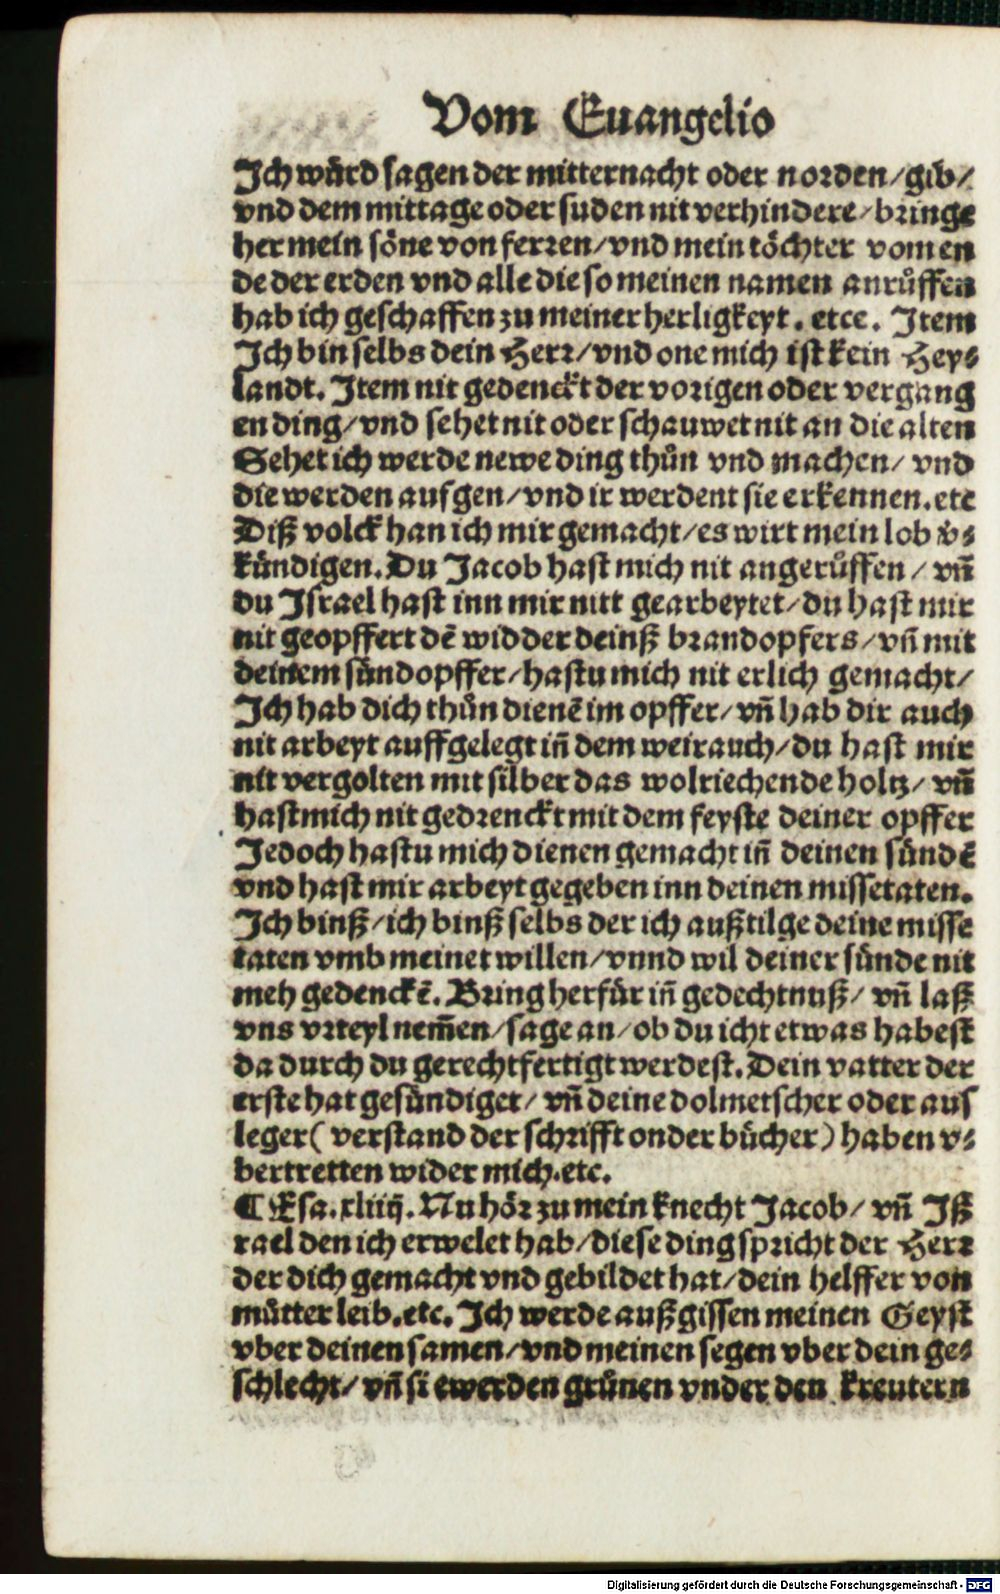 Vom Euangelio
Ich würd sagen der mitternacht oder norden/gib/
vnd dem mittage oder suden nit verhindere/bringe
her mein söne von ferren/vnd mein töchter vom en
de der erden vnd alle die so meinen namen anrůffen
hab ich geschaffen zu meiner herligkeyt. etce. Item
Ich bin selbs dein Herr/vnd one mich ist kein Hey⸗
landt. Item nit gedenckt der vorigen oder vergang
en ding/vnd sehet nit oder schauwet nit an die alten
Sehet ich werde newe ding thůn vnd machen/ vnd
die werden aufgen/vnd ir werdent sie erkennen.etc
Diß volck han ich mir gemacht/es wirt mein lob v̈⸗
kündigen. Du Jacob hast mich nit angerůffen/ vñ
du Israel hast inn mir nitt gearbeytet/du hast mir
nit geopffert dē widder deinß brandopfers/vñ mit
deinem sündopffer/hastu mich nit erlich gemacht/
Ich hab dich thůn dienē im opffer/vñ hab dir auch
nit arbeyt auffgelegt iñ dem weirauch/du hast mir
nit vergolten mit silber das wolriechende holtz/ vñ
hast mich nit gedrenckt mit dem feyste deiner opffer
Jedoch hastu mich dienen gemacht iñ deinen sündē
vnd hast mir arbeyt gegeben inn deinen missetaten.
Ich binß/ich binß selbs der ich außtilge deine misse
taten vmb meinet willen/vnnd wil deiner sünde nit
meh gedenckē. Bring herfür iñ gedechtnuß/ vñ laß
vns vrteyl nem̄en/sage an/ob du icht etwas habest
da durch du gerechtfertigt werdest. Dein vatter der
erste hat gesündiget/ vñ deine dolmetscher oder aus
leger( verstand der schrifft onder bücher) haben v⸗
bertretten wider mich.etc.
¶ Esa. xliiij. Nu hör zu mein knecht Jacob/ vñ Iß
rael den ich erwelet hab/diese ding spricht der Herr
der dich gemacht vnd gebildet hat/dein helffer von
můtter leib.etc. Ich werde außgissen meinen Geyst
vber deinen samen/vnd meinen segen vber dein ge⸗
schlecht/ vñ si ewerden grůnen vnder den kreutern
Digitalisierung gefördert durch die Deutsche Forschungsgemeinschaft - DFG